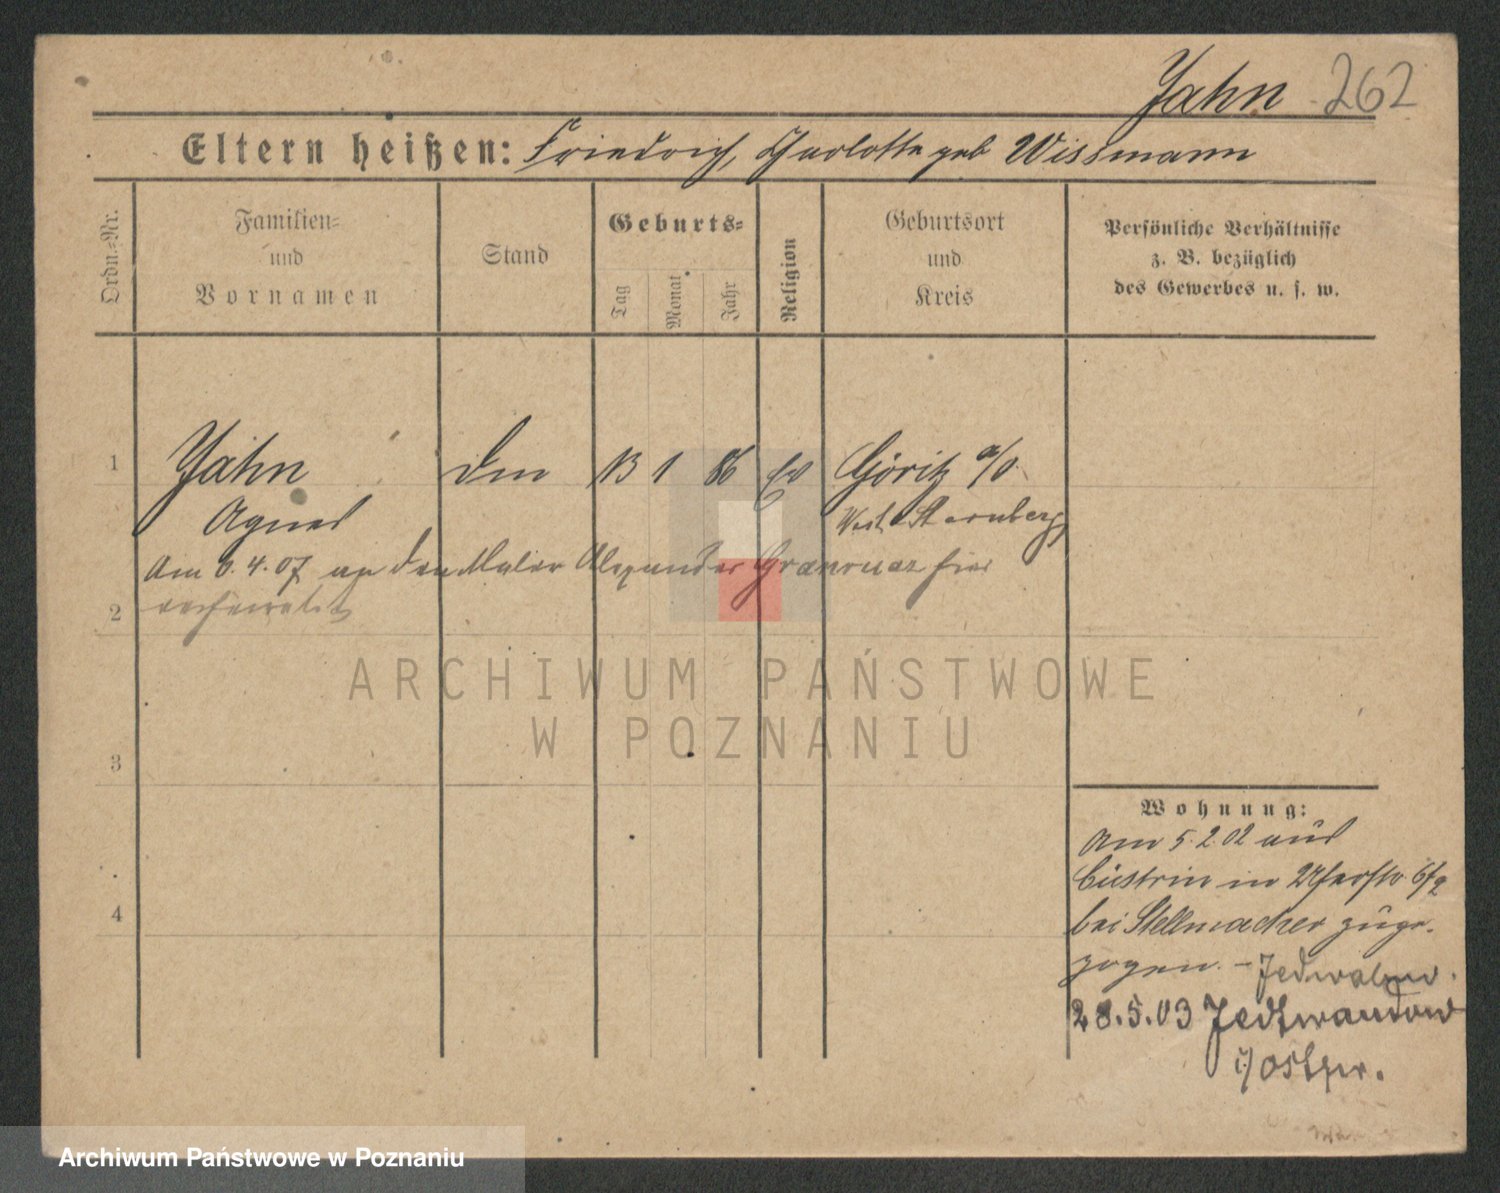 Jahn 262
Eltern heißen: Friedrich, Charlotte geb Wissmann
Ordn.=Nr.
Familien=
und
Vornamen
Stand
Geburts=
Tag
Monat
Jahr
Religion
Geburtsort
und
Kreis
Persönliche Verhältnisse
z. B. bezüglich
des Gewerbes u. s. w.
1 Jahn 13 1 86 Ev Göritz a/O
Agnes West Sternberg
Am 6.4.07 an den Maler Alexander hier
2 verheiratet
3
4
Wohnung:
Am 5.2.02 aus
Cüstrin in Uferstr 6/2
bei Stellmacher zuge-
zogen. –
28.5.03
i/ Ostpr.
ARCHIWUM PAŃSTWOWE
W POZNANIU
Archiwum Państwowe w Poznaniu